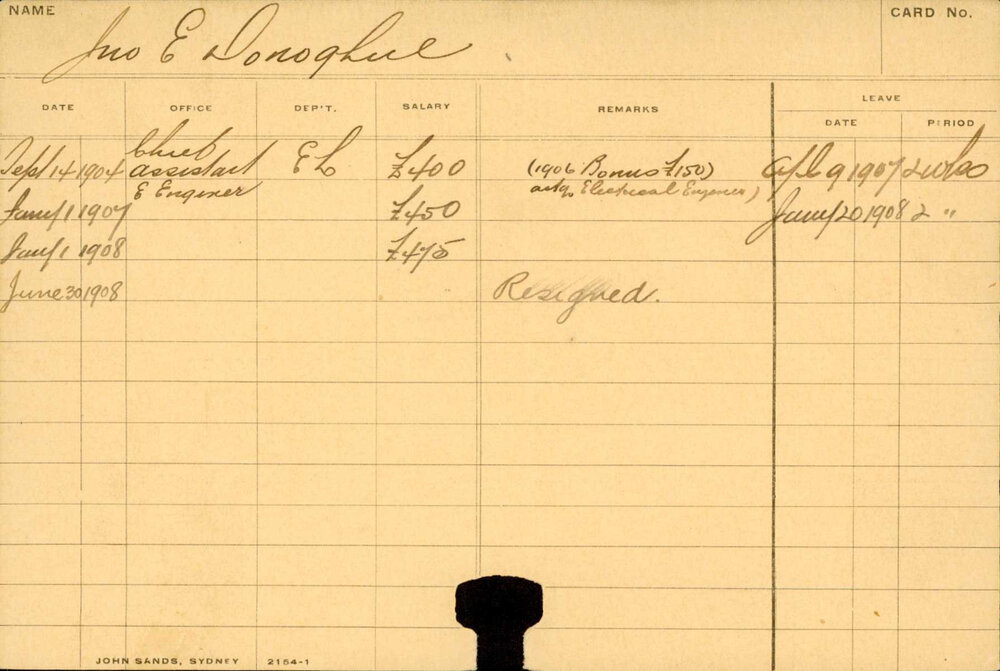 NAME
CARD No.
Jno E Donoghue
DATE OFFICE DEP'T. SALARY REMARKS LEAVE
DATE PERIOD
Sept 14 1904 Chief assistant E Engineer EL £400 (1906 Bonus £150) Apl 9 1907 2 wks
actg Electrical Engineer)
Jany 1 1907 £450 Jany 20 1908 2 "
Jany 1 1908 £475
June 30 1908 Resigned.
JOHN SANDS, SYDNEY 2154-1